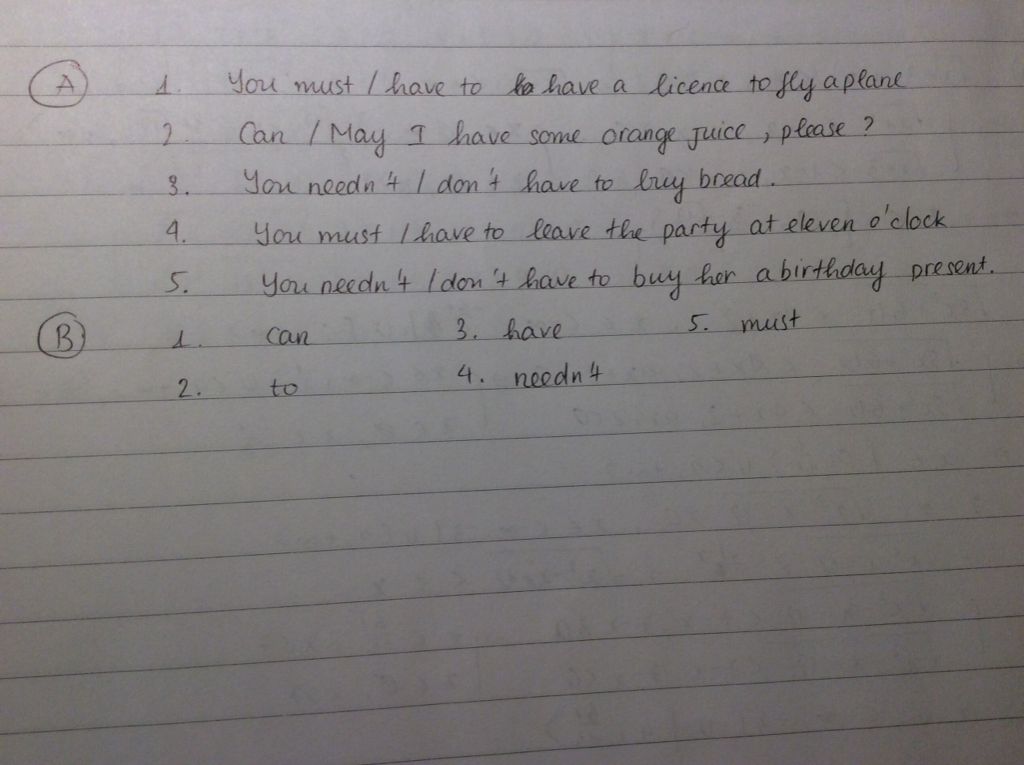 A 1. You must / have to ha have a licence to fly a plane
2. Can / May I have some orange juice, please?
3. You needn't / don't have to buy bread.
4. You must / have to leave the party at eleven o'clock
5. You needn't / don't have to buy her a birthday present.
B 1. can 3. have 5. must
2. to 4. needn't